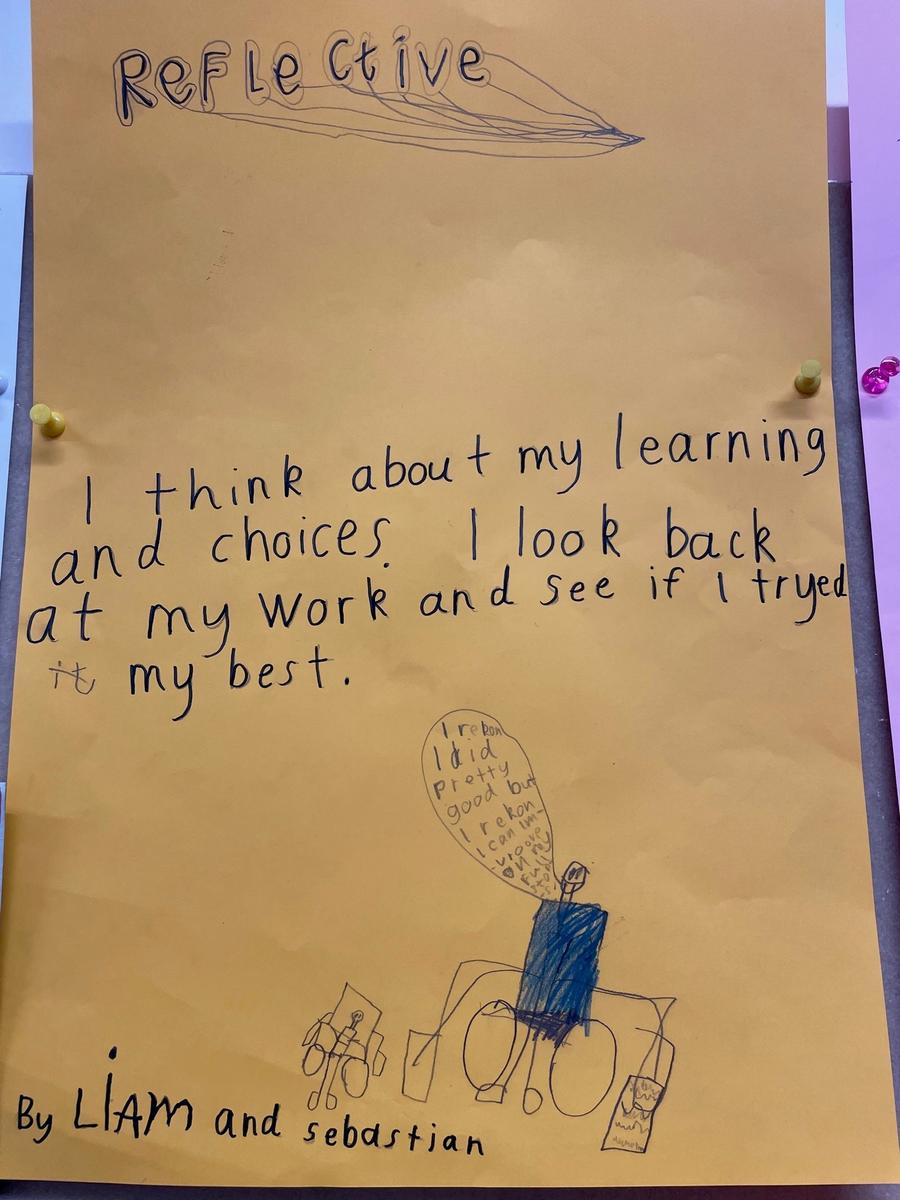 ReFLective
I think about my learning
and choices. I look back
at my work and see if I tryed
it my best.
I rekon
I did
pretty
good but
I rekon
I can im-
vroove
on my
full
stops
By LIAM and sebastian